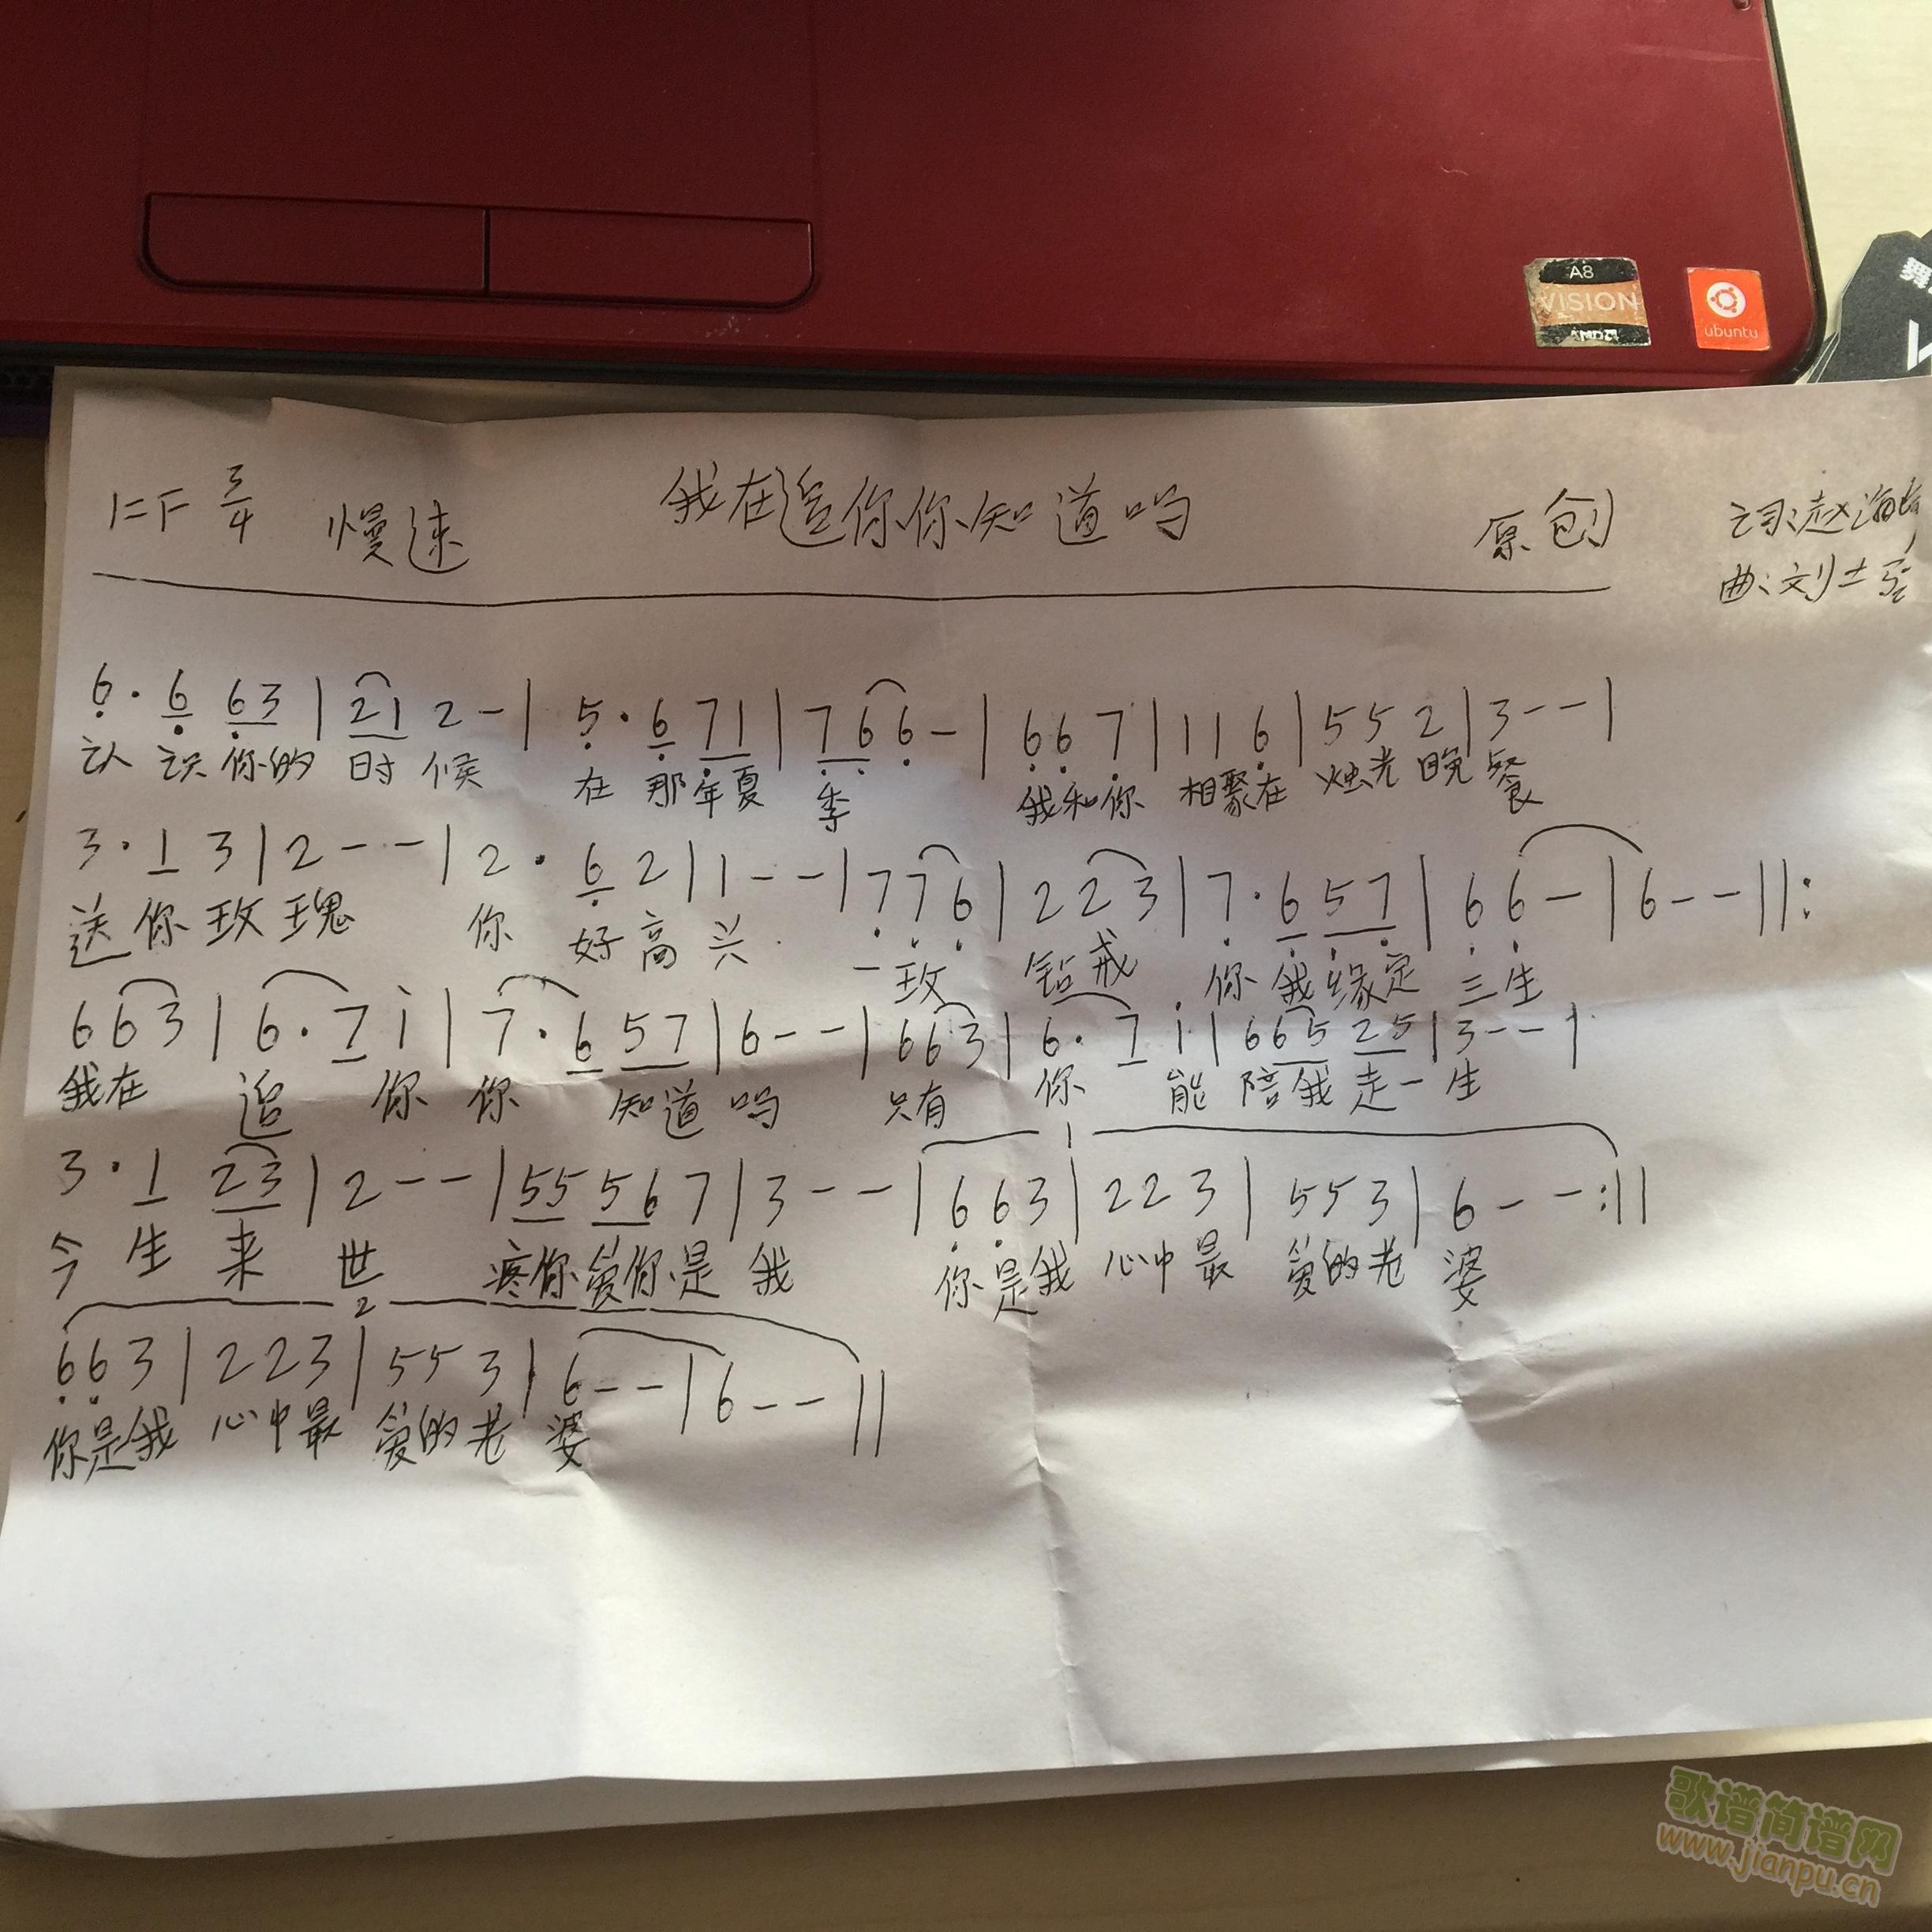 A8
VISION
AMD
ubuntu
1=F 3/4 慢速 我在追你你知道吗 原创 词:赵海
曲:刘士
6· 6 63 | 21 2 - | 5· 6 71 | 7 6 6 - | 6 6 7 | 1 1 6 | 5 5 2 | 3 - - |
认 识 你的 时 候 在 那 年夏 季 我和你 相聚在 烛光 晚 餐
3· 1 3 | 2 - - | 2· 6 2 | 1 - - | 7 7 6 | 2 2 3 | 7· 6 5 7 | 6 6 - | 6 - - ||:
送 你 玫 瑰 你 好 高 兴 一 玫 钻 戒 你 我 缘定 三 生
6 6 3 | 6· 7 i | 7· 6 57 | 6 - - | 6 6 3 | 6· 7 i | 6 65 25 | 3 - - |
我在 追 你 你 知道 吗 只有 你 能 陪 我 走一 生
3· 1 23 | 2 - - | 55 56 7 | 3 - - | 6 6 3 | 2 2 3 | 5 5 3 | 6 - - :||
1
今 生 来 世 疼你 爱你 是 我 你是我 心中 最 爱的 老 婆
2
6 6 3 | 2 2 3 | 5 5 3 | 6 - - | 6 - - ||
你是我 心中最 爱的 老 婆
歌谱简谱网
www.jianpu.cn